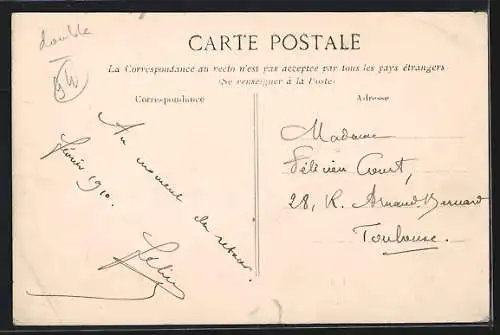 double
CARTE POSTALE
La Correspondance au recto n'est pas acceptée par tous les pays étrangers
(Se renseigner à la Poste)
Correspondance
Adresse
Au moment du retour.
février 1910.
Félicien
Madame
Félicien Court,
28, R. Arnaud-Bernard
Toulouse.